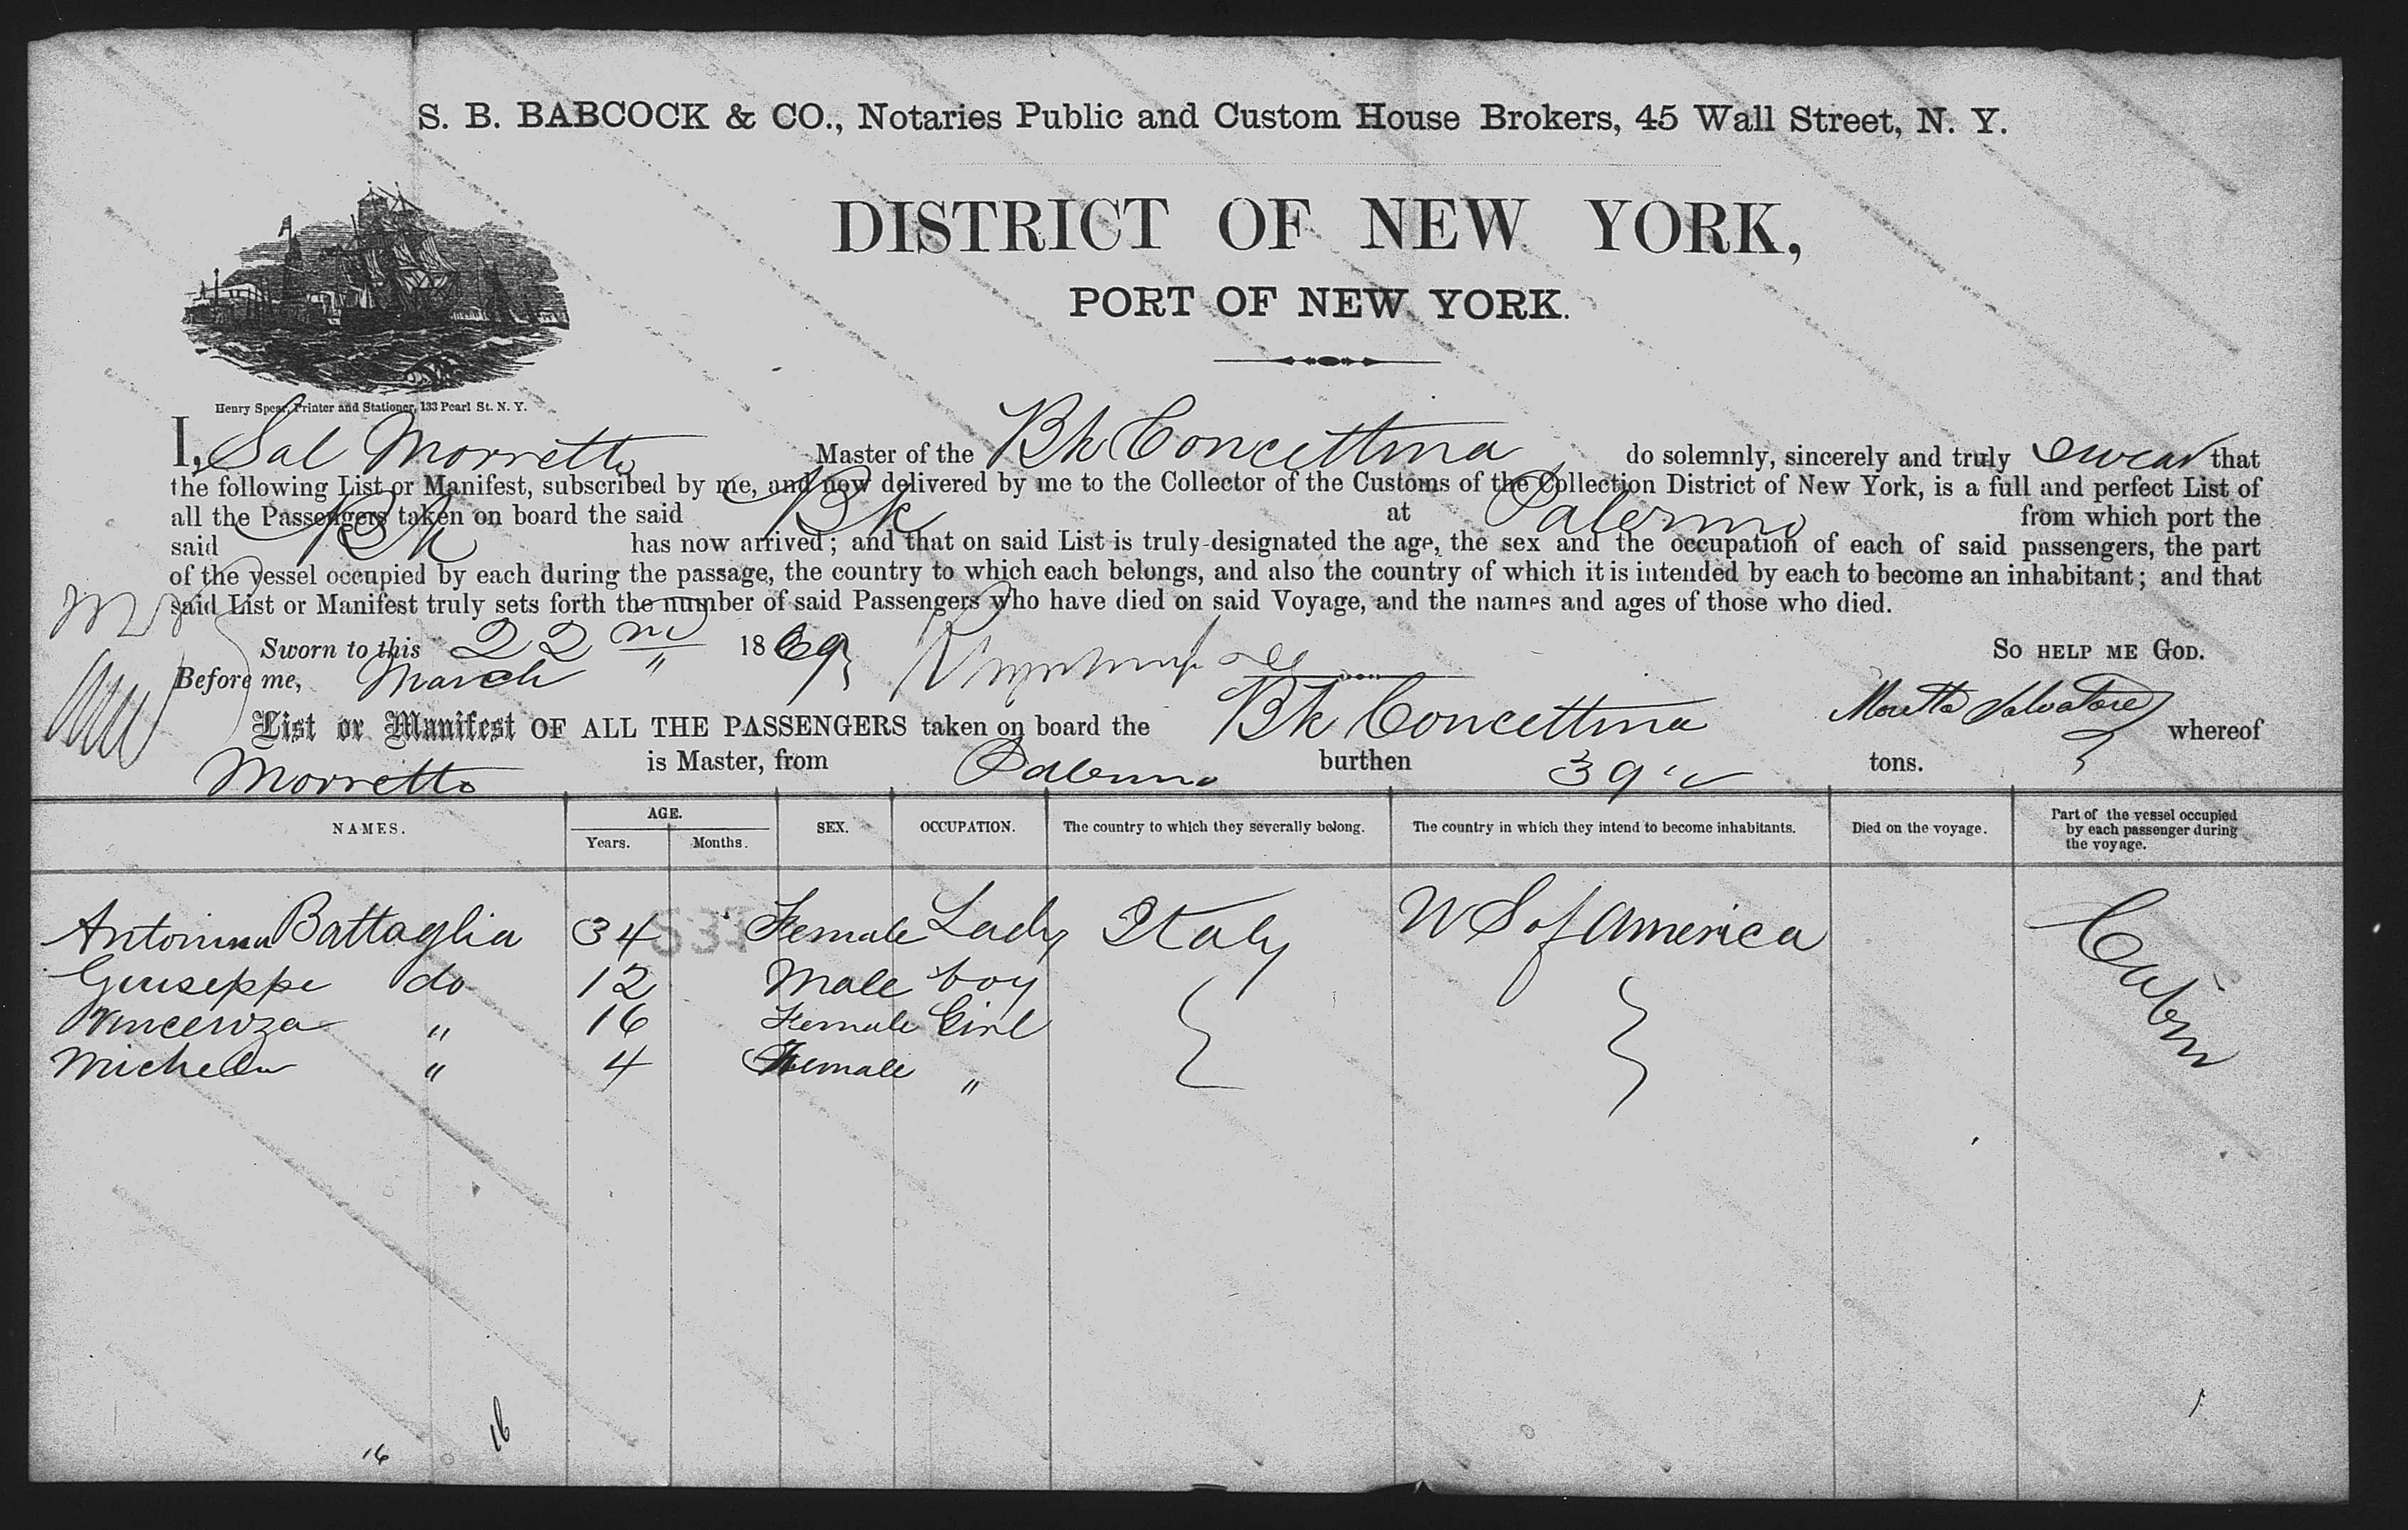 S. B. BABCOCK & CO., Notaries Public and Custom House Brokers, 45 Wall Street, N. Y.
DISTRICT OF NEW YORK,
PORT OF NEW YORK.
Henry Spear, Printer and Stationer, 133 Pearl St. N. Y.
I, Sal Morretto Master of the Bk Concettina do solemnly, sincerely and truly swear that
the following List or Manifest, subscribed by me, and now delivered by me to the Collector of the Customs of the Collection District of New York, is a full and perfect List of
all the Passengers taken on board the said Bk at Palermo from which port the
said Bk has now arrived; and that on said List is truly designated the age, the sex and the occupation of each of said passengers, the part
of the vessel occupied by each during the passage, the country to which each belongs, and also the country of which it is intended by each to become an inhabitant; and that
said List or Manifest truly sets forth the number of said Passengers who have died on said Voyage, and the names and ages of those who died.
Sworn to this 22nd " 1869 So HELP ME GOD.
Before me, March
List or Manifest OF ALL THE PASSENGERS taken on board the Bk Concettina Moretto Salvatore whereof
Morretto is Master, from Palermo burthen tons.
NAMES. AGE. Years. Months. SEX. OCCUPATION. The country to which they severally belong. The country in which they intend to become inhabitants. Died on the voyage. Part of the vessel occupied by each passenger during the voyage.
Antonina Battaglia 34 Female Lady Italy U S of America Cabin
Giuseppe do 12 Male boy
Vincenza " 16 Female Girl
Michela " 4 Female "
16
16